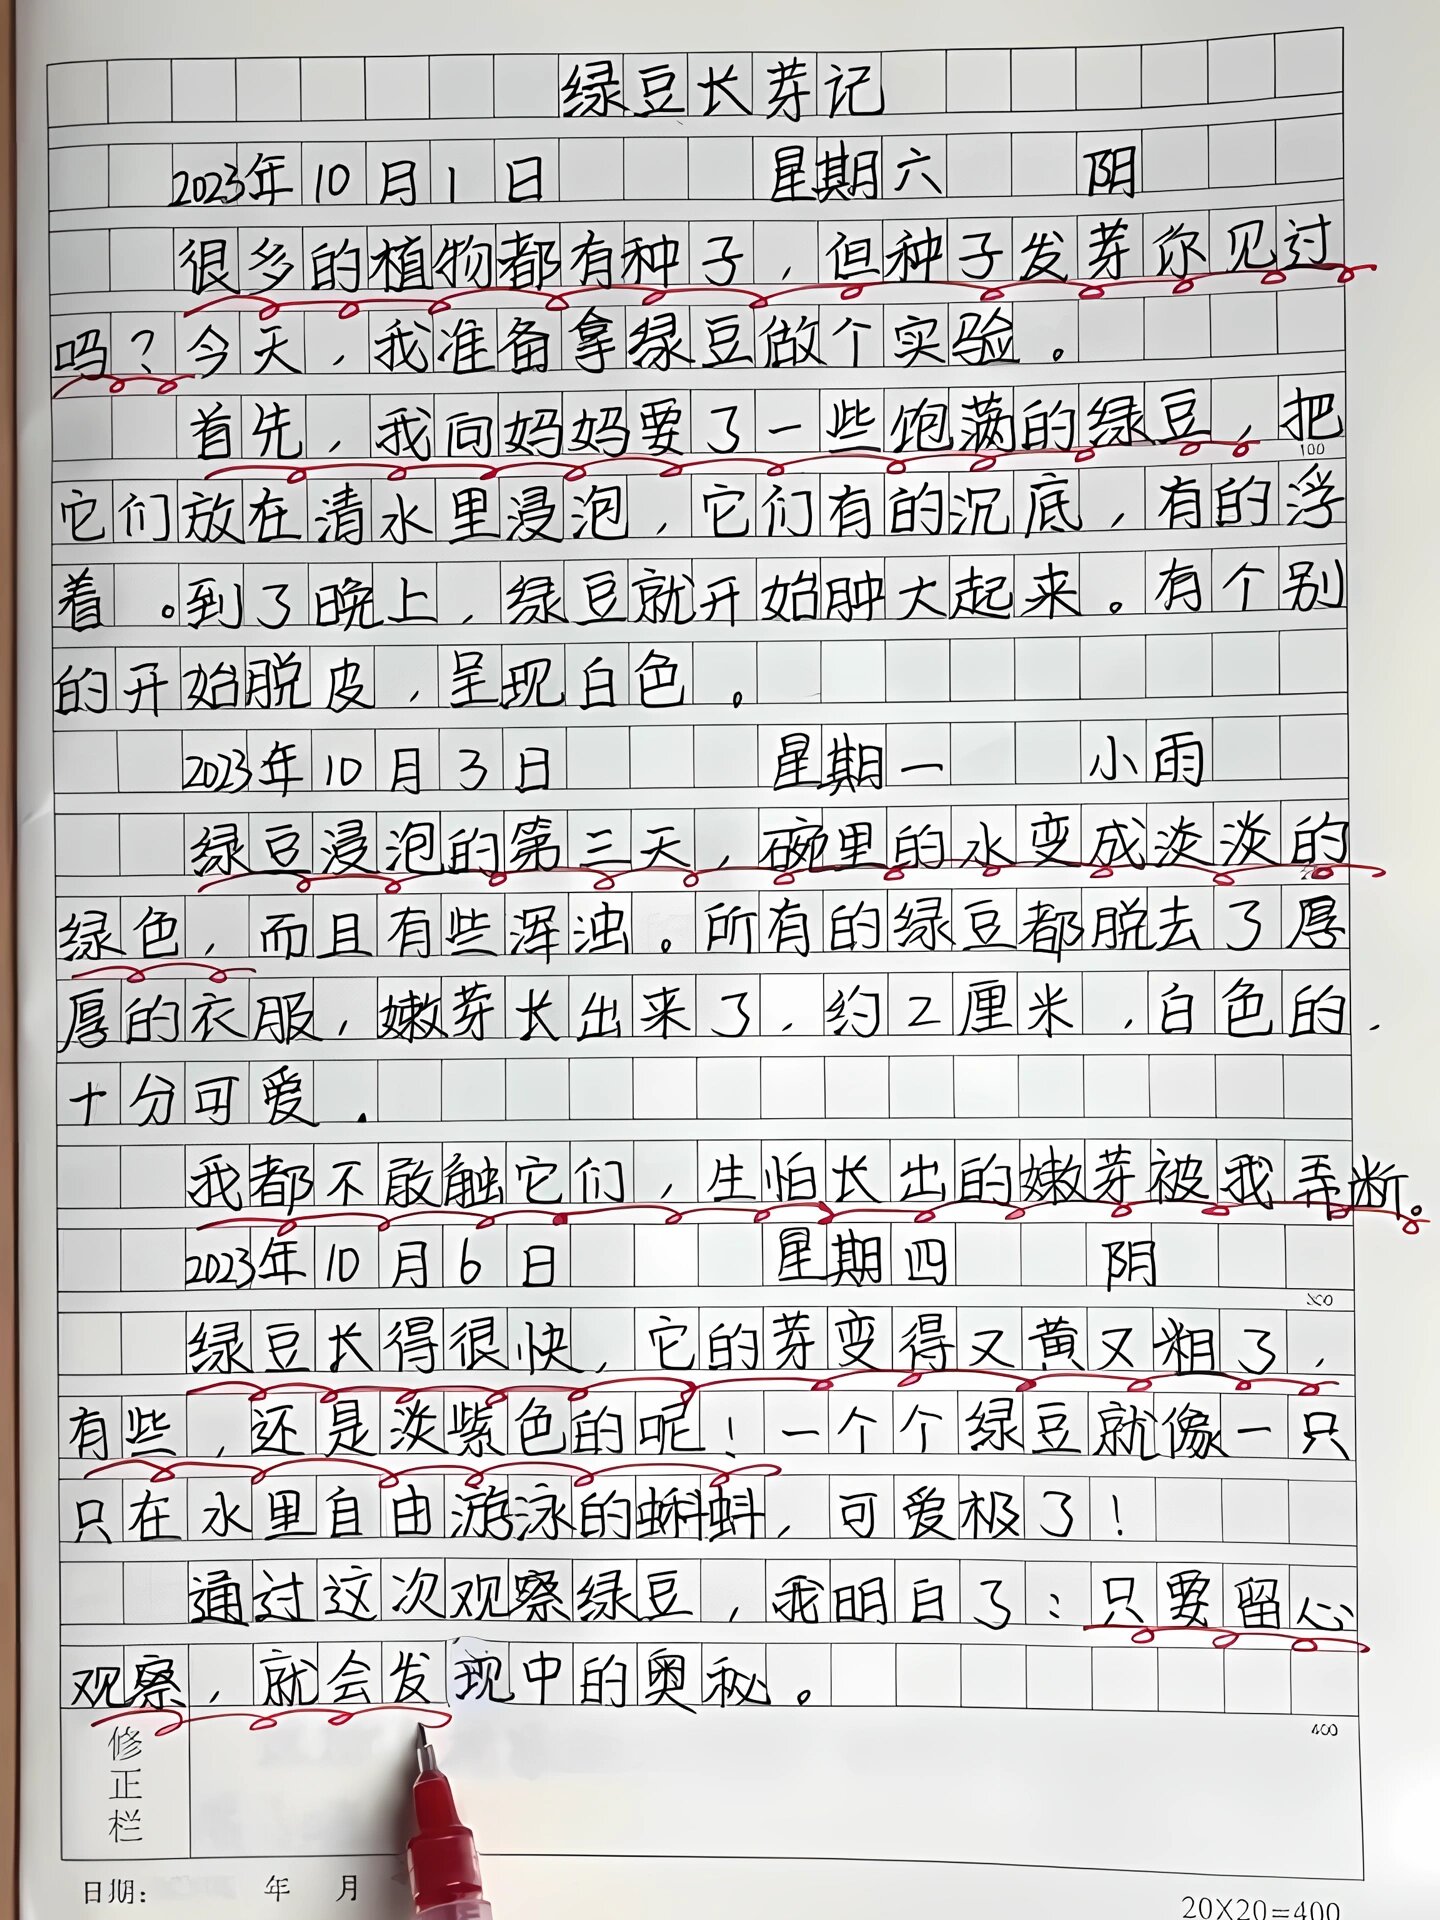 绿豆长芽记
2023年10月1日 星期六 阴
很多的植物都有种子，但种子发芽你见过
吗？今天，我准备拿绿豆做个实验。
首先，我向妈妈要了一些饱满的绿豆，把
100
它们放在清水里浸泡，它们有的沉底，有的浮
着。到了晚上，绿豆就开始肿大起来。有个别
的开始脱皮，呈现白色。
2023年10月3日 星期一 小雨
绿豆浸泡的第三天，碗里的水变成淡淡的
绿色，而且有些浑浊。所有的绿豆都脱去了厚
厚的衣服，嫩芽长出来了，约2厘米，白色的，
十分可爱.
我都不敢触它们，生怕长出的嫩芽被我弄断。
2023年10月6日 星期四 阴
绿豆长得很快，它的芽变得又黄又粗了，
有些，还是淡紫色的呢！一个个绿豆就像一只
只在水里自由游泳的蝌蚪，可爱极了！
通过这次观察绿豆，我明白了：只要留心
观察，就会发现中的奥秘。
400
修正栏
日期： 年 月
20X20=400